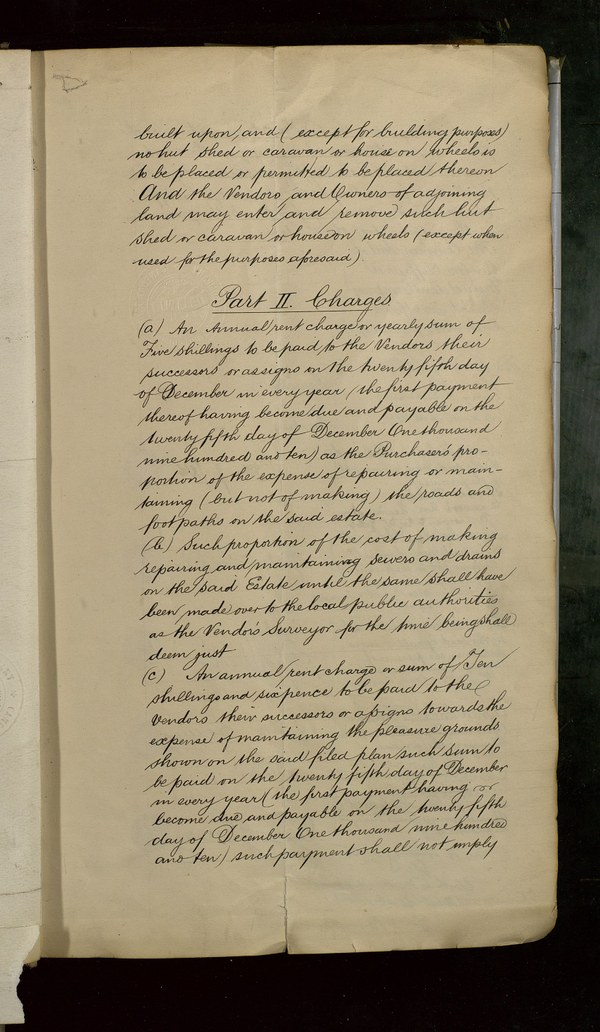 built upon, and (except for building purposes)
no hut shed or caravan or house on wheels is
to be placed or permitted to be placed thereon
And the Vendors and Owners of adjoining
land may enter and remove such hut
shed or caravan or house on wheels (except when
used for the purposes aforesaid)
Part II. Charges
(a) An Annual rent charge or yearly sum of
Five shillings to be paid to the Vendors their
successors or assigns on the twenty fifth day
of December in every year (the first payment
thereof having become due and payable on the
twenty fifth day of December One thousand
nine hundred and ten) as the Purchaser's pro-
portion of the expense of repairing or main-
taining (but not of making) the roads and
footpaths on the said estate.
(b) Such proportion of the cost of making
repairing and maintaining sewers and drains
on the said Estate until the same shall have
been made over to the local public authorities
as the Vendor's Surveyor for the time being shall
deem just
(c) An annual rent charge or sum of Ten
shillings and sixpence to be paid to the
Vendors their successors or assigns towards the
expense of maintaining the pleasure grounds
shown on the said filed plan such sum to
be paid on the twenty fifth day of December
in every year (the first payment having
become due and payable on the twenty fifth
day of December One thousand nine hundred
and ten) such payment shall not imply